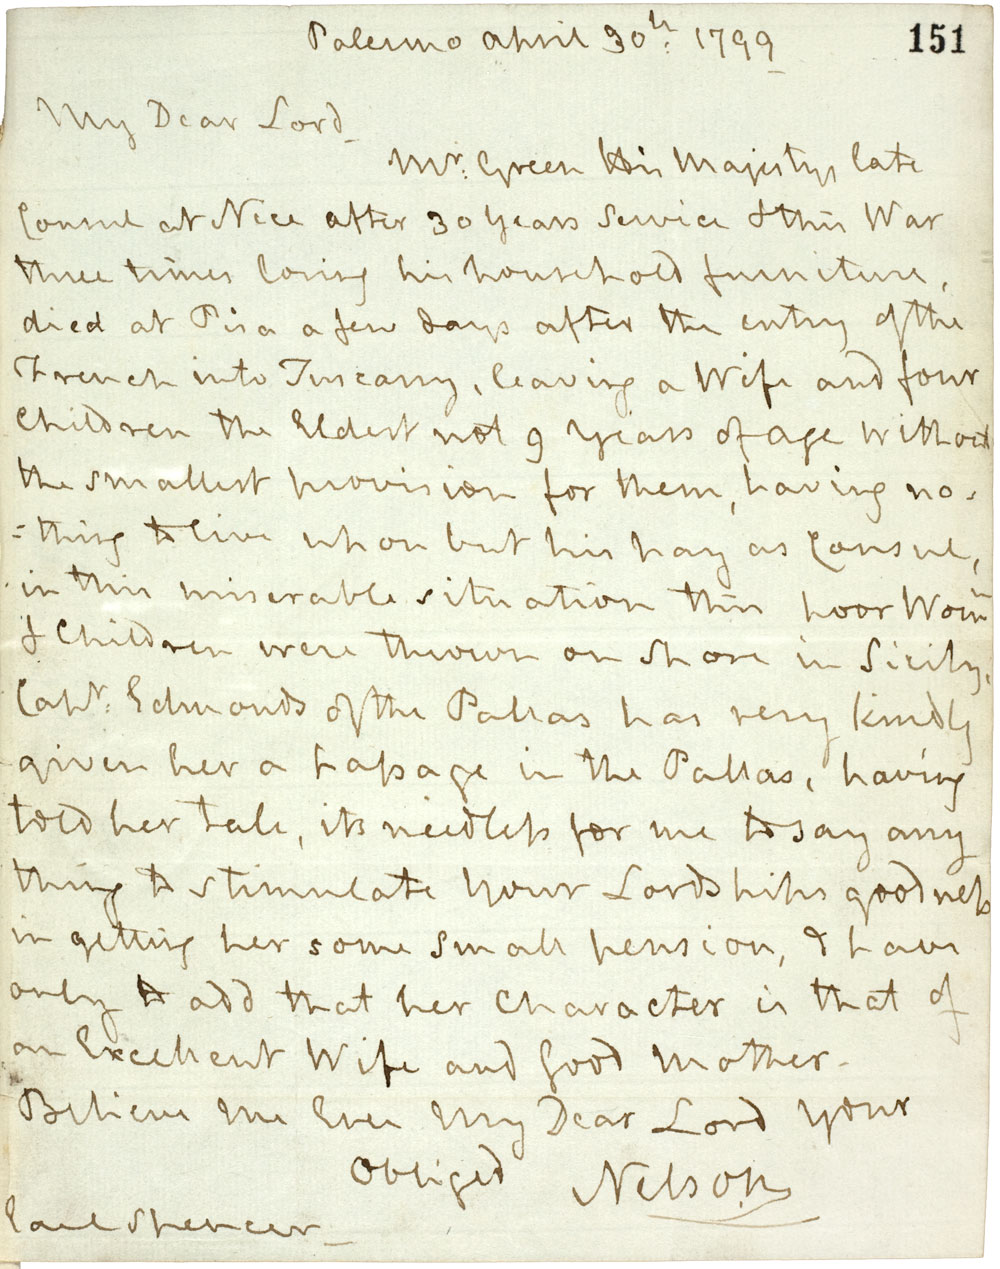 Palermo April 30th: 1799
151
My Dear Lord
Mr: Green His Majestys late
Consul at Nice after 30 Years Service & this War
three times losing his household furniture,
died at Pisa a few days after the entry of the
French into Tuscany, leaving a Wife and four
Children the Eldest not 9 Years of age without
the smallest provision for them, having no-
-thing to live upon but his pay as Consul,
in this miserable situation this poor Womn
& Children were thrown on shore in Sicily.
Capt: Edmonds of the Pallas has very kindly
given her a passage in the Pallas, having
told her tale, its needless for me to say any
thing to stimulate Your Lordships goodness
in getting her some small pension, I have
only to add that her Character is that of
an Excellent Wife and Good Mother-
Believe Me Ever My Dear Lord Your
Obliged Nelson
Earl Spencer_